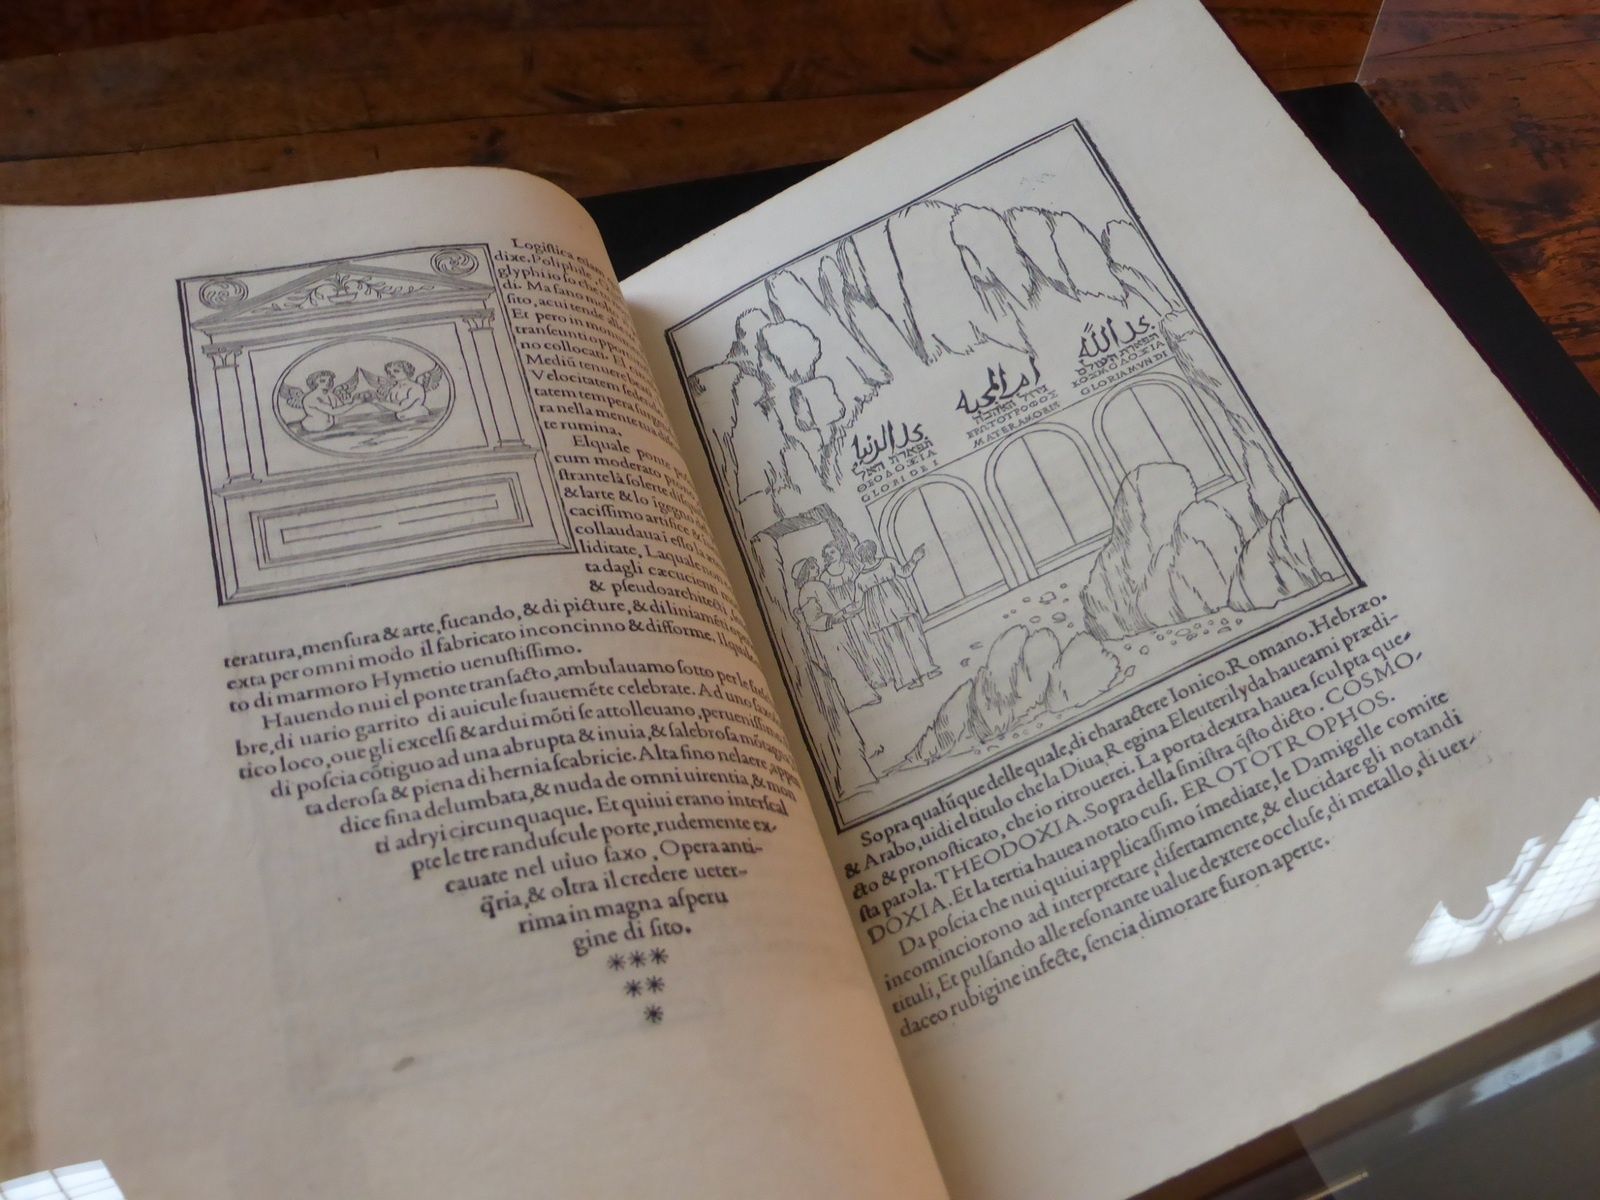 Logiſtica etiam
dixe. Poliphile
glyphi io ſo che
di. Ma ſano molto
ſito, acui tende alle
Et pero in
tranſeunti opportuna
no collocati. El
Mediũ tenuere beati
Velocitatem ſedendo
tatem tempera ſurgendo
ra nella mente tua diſcu
te rumina.
Elquale ponte
cum moderato prono
ſtrante la ſolerte
& larte & lo ĩgegno del
caciſſimo artifice &
collaudaua ĩ eſſo la
liditate, Laquale non
ta dagli cæcucienti
& pſeudoarchitecti,
teratura, menſura & arte, fucando, & di picture, & di liniamẽti
exta per omni modo il fabricato inconcinno & difforme. Il quale
to di marmoro Hymetio uenuſtiſſimo.
Hauendo nui el ponte tranſacto, ambulauamo ſotto per le
bre, di uario garrito di auicule ſuauemẽte celebrate. Ad uno ſaxo
tico loco, oue gli excelſi & ardui mõti ſe attolleuano, perueniſſimo
di poſcia cõtiguo ad una abrupta & inuia, & ſalebroſa mõtagna
ta deroſa & piena di hernia ſcabricie. Alta ſino nelaere,
dice ſina delumbata, & nuda de omni uirentia, & mon
ti adryi circunquaque. Et quiui erano interſcal
pte le tre randuſcule porte, rudemente ex-
cauate nel uiuo ſaxo, Opera anti-
q̃ria, & oltra il credere ueter-
rima in magna aſperu
gine di ſito.
***
**
*
ΘΕΟΔΟΞΙΑ
GLORI DEI
ΕΡΩΤΟΤΡΟΦΟΣ
MATERAMORIS
ΚΟΣΜΟΔΟΞΙΑ
GLORIAMVNDI
Sopra qualũque delle quale, di charactere Ionico. Romano. Hebræo.
& Arabo, uidi el titulo che la Diua Regina Eleuterilyda haueami prædi-
cto & pronoſticato, che io ritrouerei. La porta dextra hauea ſculpta que-
ſta parola. THEODOXIA. Sopra della ſiniſtra q̃ſto dicto. COSMO-
DOXIA. Et la tertia hauea notato cuſi. EROTOTROPHOS.
Da poſcia che nui quiui applicaſſimo ĩmediate, le Damigelle comite
ĩncominciorono ad interpretare, diſertamente, & elucidare gli notandi
tituli, Et pulſando alle reſonante ualue dextere occluſe, di metallo, di uer-
daceo rubigine infecte, ſencia dimorare furon aperte.